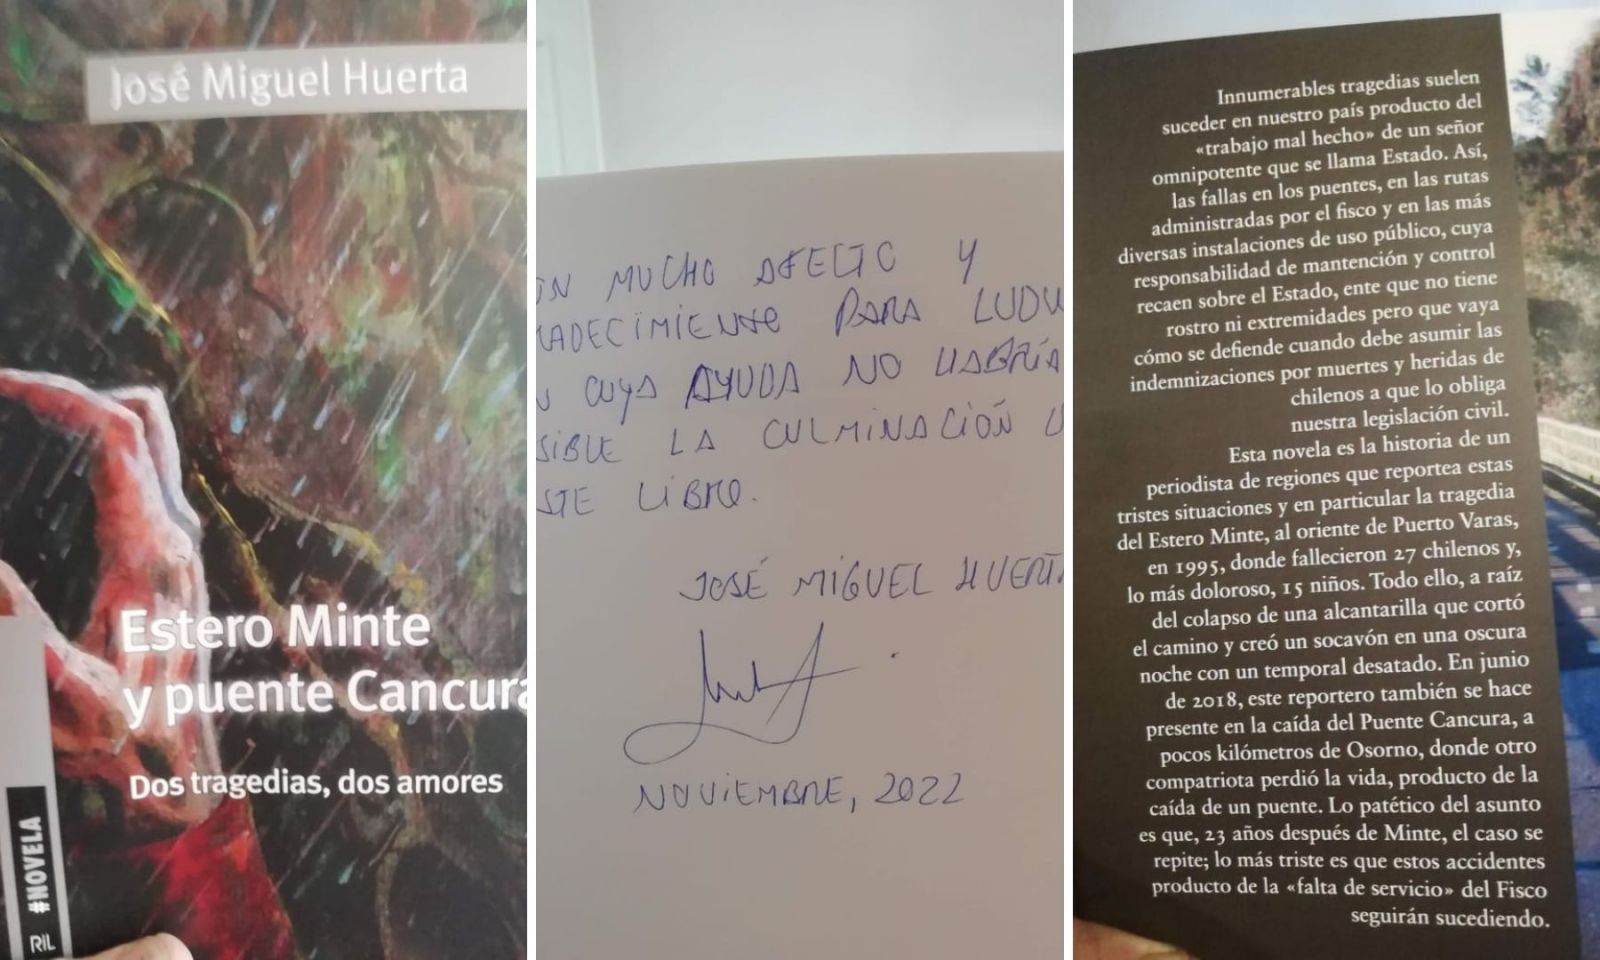 José Miguel Huerta
Estero Minte
y puente Cancura
Dos tragedias, dos amores
#NOVELA
RIL
ON MUCHO AFECTO Y
RADECIMIENTO PARA LUDW
CUYA AYUDA NO HABRÍA
SIBLE LA CULMINACIÓN
STE LIBRO.
JOSÉ MIGUEL HUERTA
NOVIEMBRE, 2022
Innumerables tragedias suelen
suceder en nuestro país producto del
«trabajo mal hecho» de un señor
omnipotente que se llama Estado. Así,
las fallas en los puentes, en las rutas
administradas por el fisco y en las más
diversas instalaciones de uso público, cuya
responsabilidad de mantención y control
recaen sobre el Estado, ente que no tiene
rostro ni extremidades pero que vaya
cómo se defiende cuando debe asumir las
indemnizaciones por muertes y heridas de
chilenos a que lo obliga
nuestra legislación civil.
Esta novela es la historia de un
periodista de regiones que reportea estas
tristes situaciones y en particular la tragedia
del Estero Minte, al oriente de Puerto Varas,
en 1995, donde fallecieron 27 chilenos y,
lo más doloroso, 15 niños. Todo ello, a raíz
del colapso de una alcantarilla que cortó
el camino y creó un socavón en una oscura
noche con un temporal desatado. En junio
de 2018, este reportero también se hace
presente en la caída del Puente Cancura, a
pocos kilómetros de Osorno, donde otro
compatriota perdió la vida, producto de la
caída de un puente. Lo patético del asunto
es que, 23 años después de Minte, el caso se
repite; lo más triste es que estos accidentes
producto de la «falta de servicio» del Fisco
seguirán sucediendo.